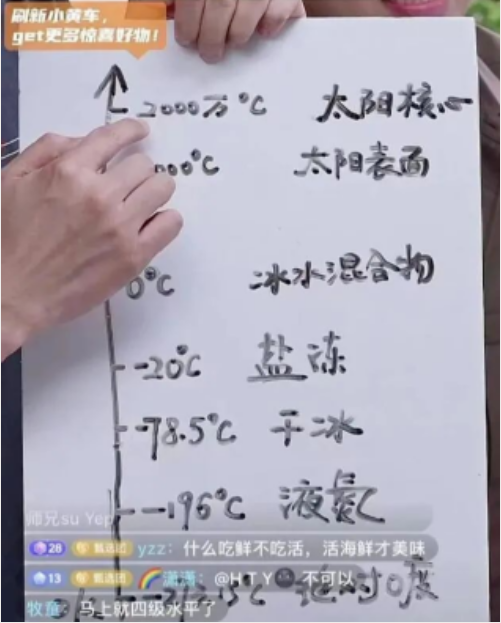 刷新小黄车，
get更多惊喜好物！
2000万°C 太阳核心
000°C 太阳表面
0°C 冰水混合物
-20°C 盐冻
-78.5°C 干冰
-196°C 液氮
师兄su Yep
28 甄选团 yzz：什么吃鲜不吃活，活海鲜才美味
13 甄选团 潇潇：@H T Y 不可以
°C 绝对0度
牧童：马上就四级水平了